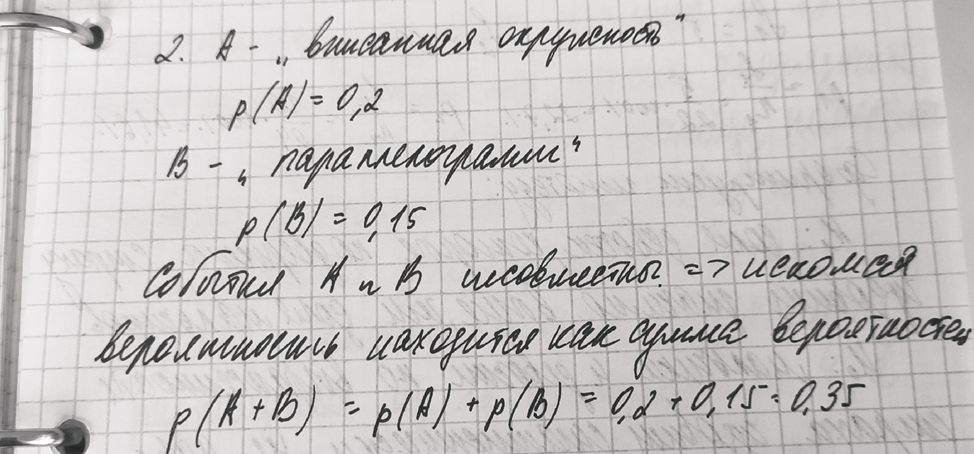 2. A - „вписанная окружность"
p(A) = 0,2
B - „параллелограмм"
p(B) = 0,15
События A и B несовместны => искомая
вероятность находится как сумма вероятностей
p(A+B) = p(A) + p(B) = 0,2 + 0,15 = 0,35